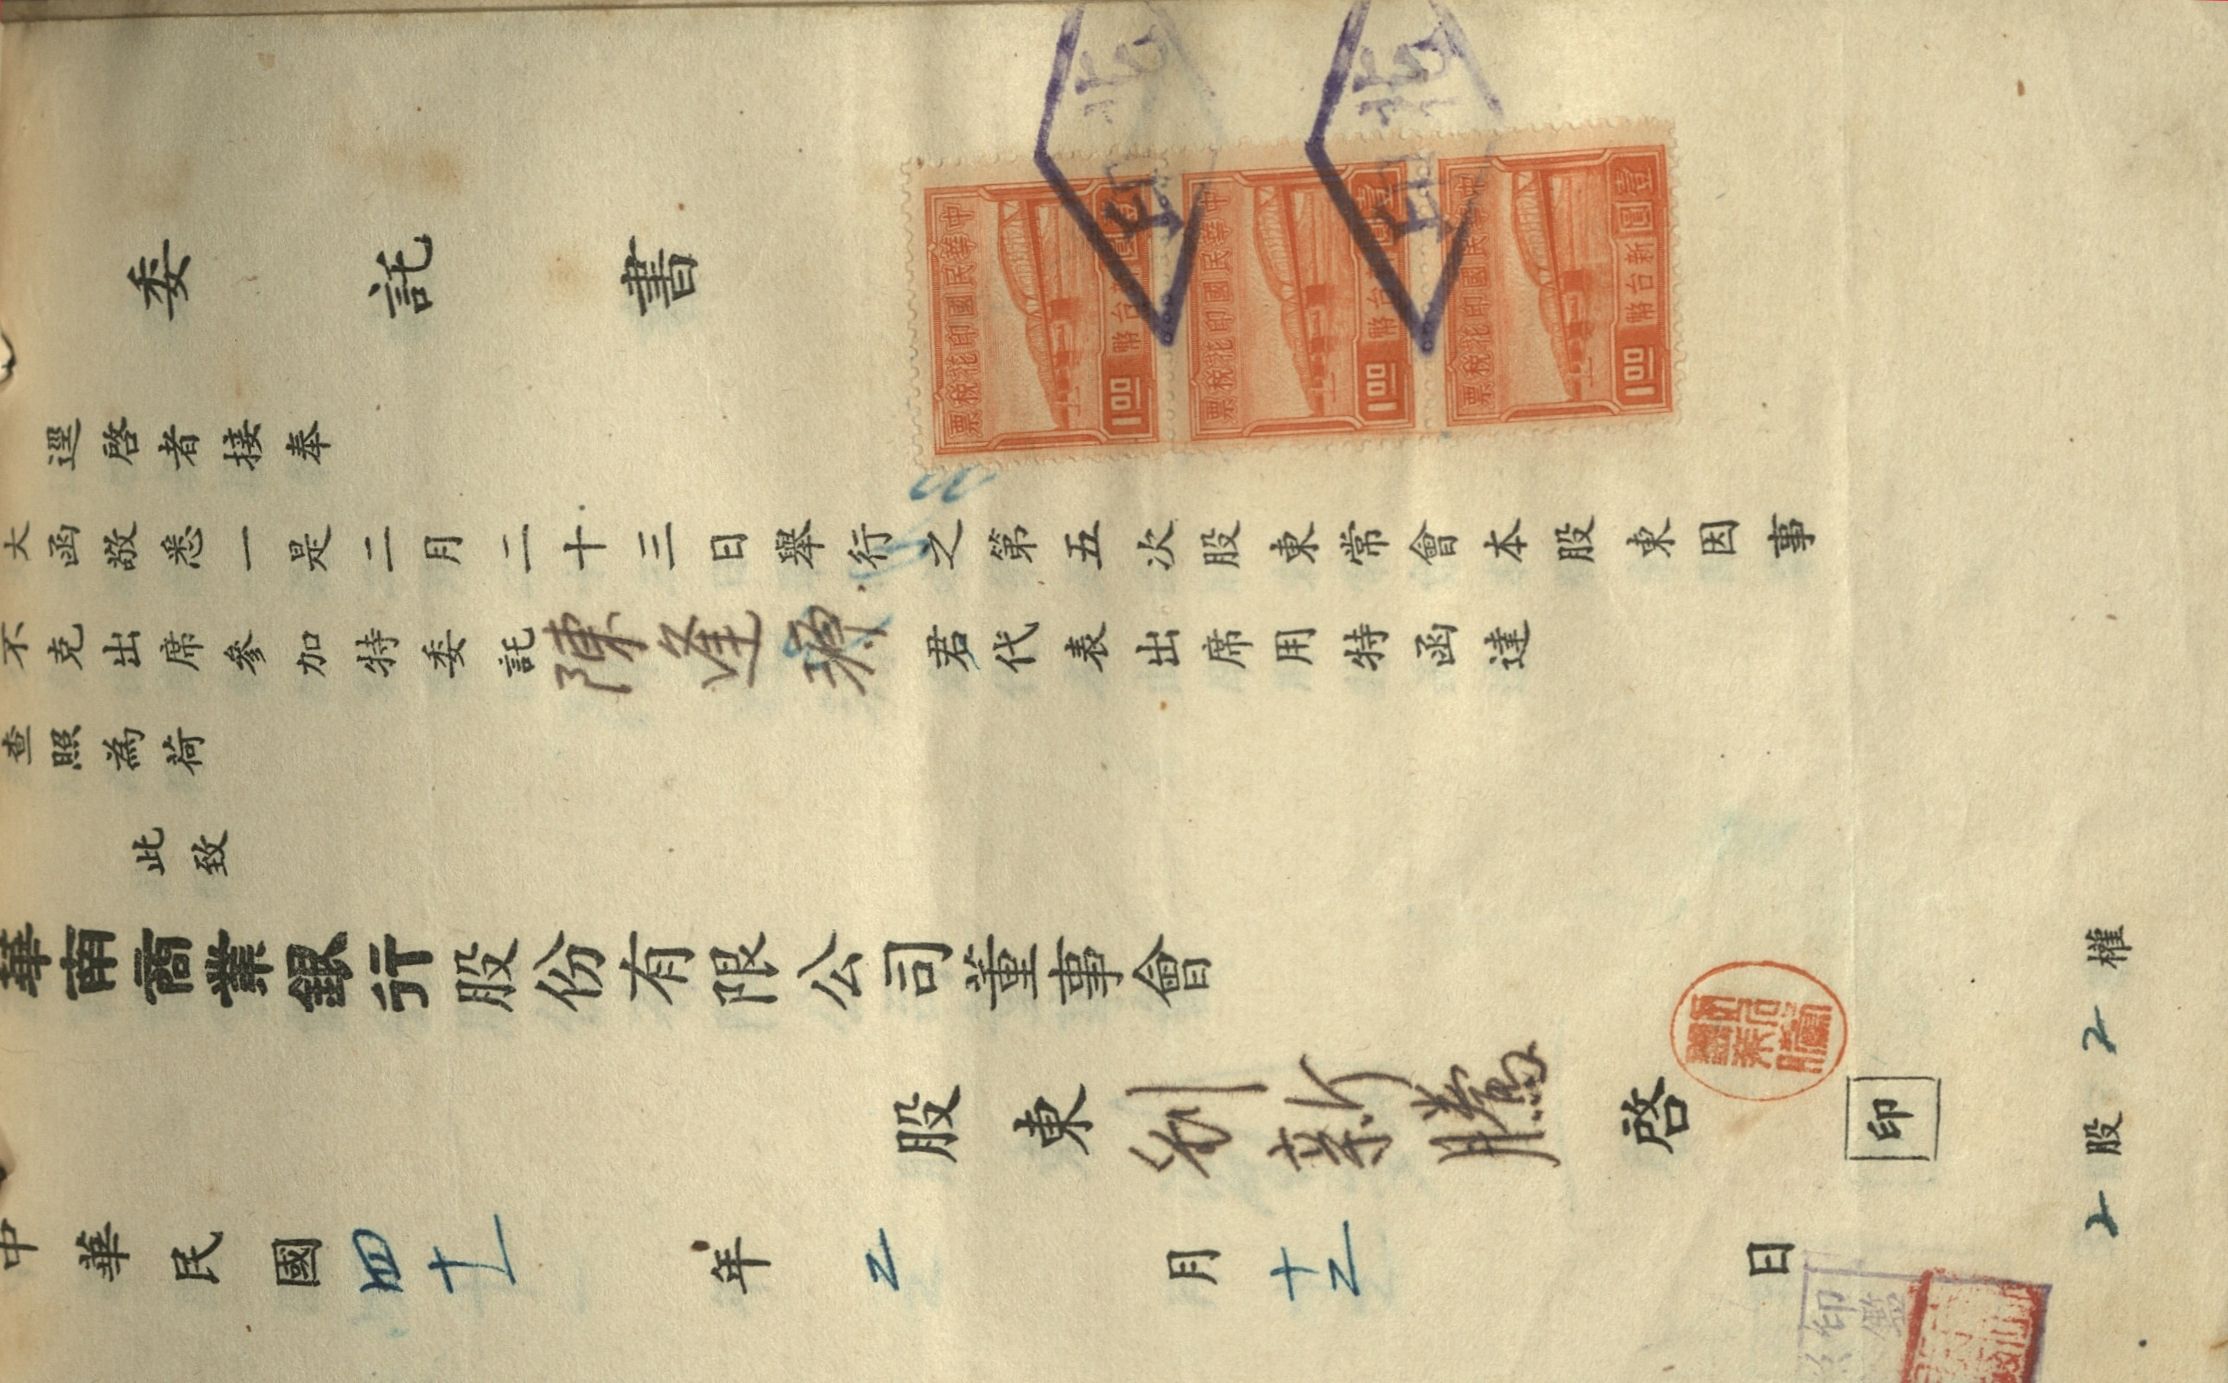 委託書
逕啓者接奉
大函敬悉一是二月二十三日舉行之第五次股東常會本股東因事
不克出席參加特委託陳逢源君代表出席用特函達
查照為荷
此致
華南商業銀行股份有限公司董事會
股東 劉新騰 啓
印
中華民國四十一年2月十2日
2股2權
中華民國印花稅票
壹圓
新台幣
1.00
中華民國印花稅票
台幣
1.00
中華民國印花稅票
台幣
1.00
印鑑